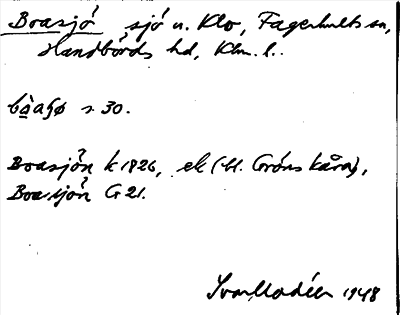 Boasjö sjö n. Klo, Fagerhults sn,
Handbörds hd, Klm. l.
bòaʃø s. 30.
Boasjön k 1826, ek (bl. Gröns kåra),
Boasjön G 21.
Ivar Modéer 1948